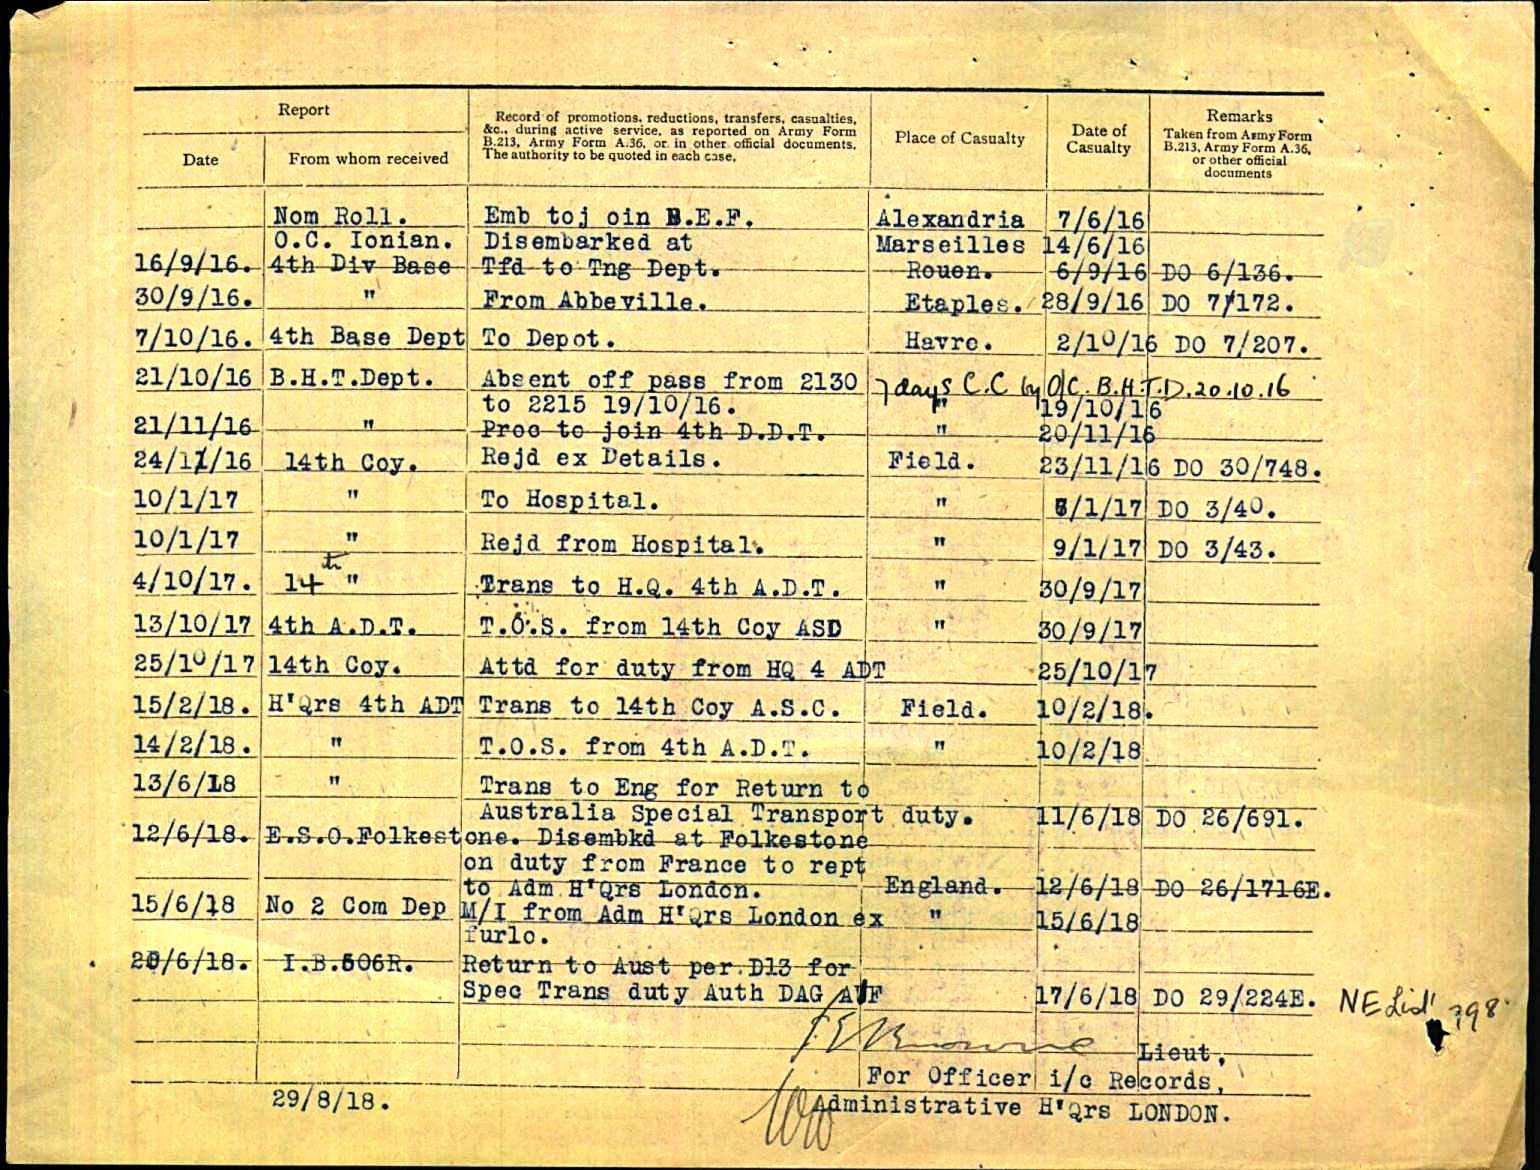 Report
Date
From whom received
Record of promotions, reductions, transfers, casualties,
&c., during active service, as reported on Army Form
B.213, Army Form A.36, or in other official documents.
The authority to be quoted in each case.
Place of Casualty
Date of
Casualty
Remarks
Taken from Army Form
B.213, Army Form A.36,
or other official
documents
Nom Roll. Emb toj oin B.E.F. Alexandria 7/6/16
O.C. Ionian. Disembarked at Marseilles 14/6/16
16/9/16. 4th Div Base Tfd to Tng Dept. Rouen. 6/9/16 DO 6/136.
30/9/16. " From Abbeville. Etaples. 28/9/16 DO 7/172.
7/10/16. 4th Base Dept To Depot. Havre. 2/10/16 DO 7/207.
21/10/16 B.H.T.Dept. Absent off pass from 2130 7 days C.C by O/C. B.H.T.D. 20.10.16
to 2215 19/10/16. " 19/10/16
21/11/16 " Proc to join 4th D.D.T. " 20/11/16
24/11/16 14th Coy. Rejd ex Details. Field. 23/11/16 DO 30/748.
10/1/17 " To Hospital. " /1/17 DO 3/40.
10/1/17 " Rejd from Hospital. " 9/1/17 DO 3/43.
4/10/17. 14th " Trans to H.Q. 4th A.D.T. " 30/9/17
13/10/17 4th A.D.T. T.O.S. from 14th Coy ASD " 30/9/17
25/10/17 14th Coy. Attd for duty from HQ 4 ADT 25/10/17
15/2/18. H'Qrs 4th ADT Trans to 14th Coy A.S.C. Field. 10/2/18.
14/2/18. " T.O.S. from 4th A.D.T. " 10/2/18
13/6/18 " Trans to Eng for Return to
Australia Special Transport duty. 11/6/18 DO 26/691.
12/6/18. E.S.O.Folkestone. Disembkd at Folkestone
on duty from France to rept
to Adm H'Qrs London. England. 12/6/18 DO 26/1716E.
15/6/18 No 2 Com Dep M/I from Adm H'Qrs London ex " 15/6/18
furlo.
20/6/18. I.B.506R. Return to Aust per D13 for
Spec Trans duty Auth DAG AIF 17/6/18 DO 29/224E. NE List
Lieut,
For Officer i/c Records,
29/8/18. Administrative H'Qrs LONDON.